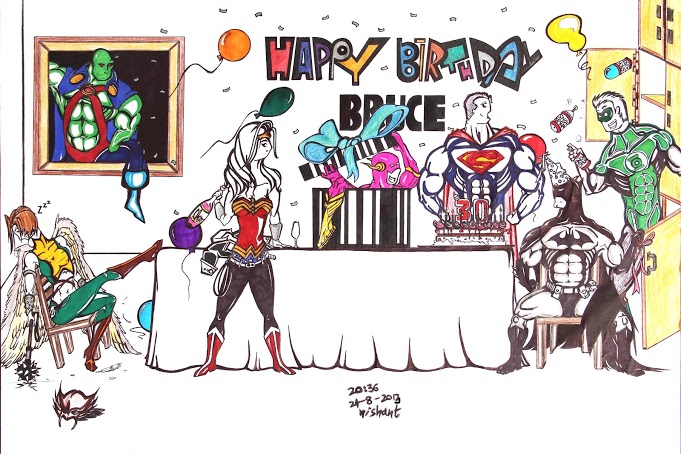 HAPPY BIRTHDAY
BRUCE
zzz
30
20:36
24-8-2013
nishant